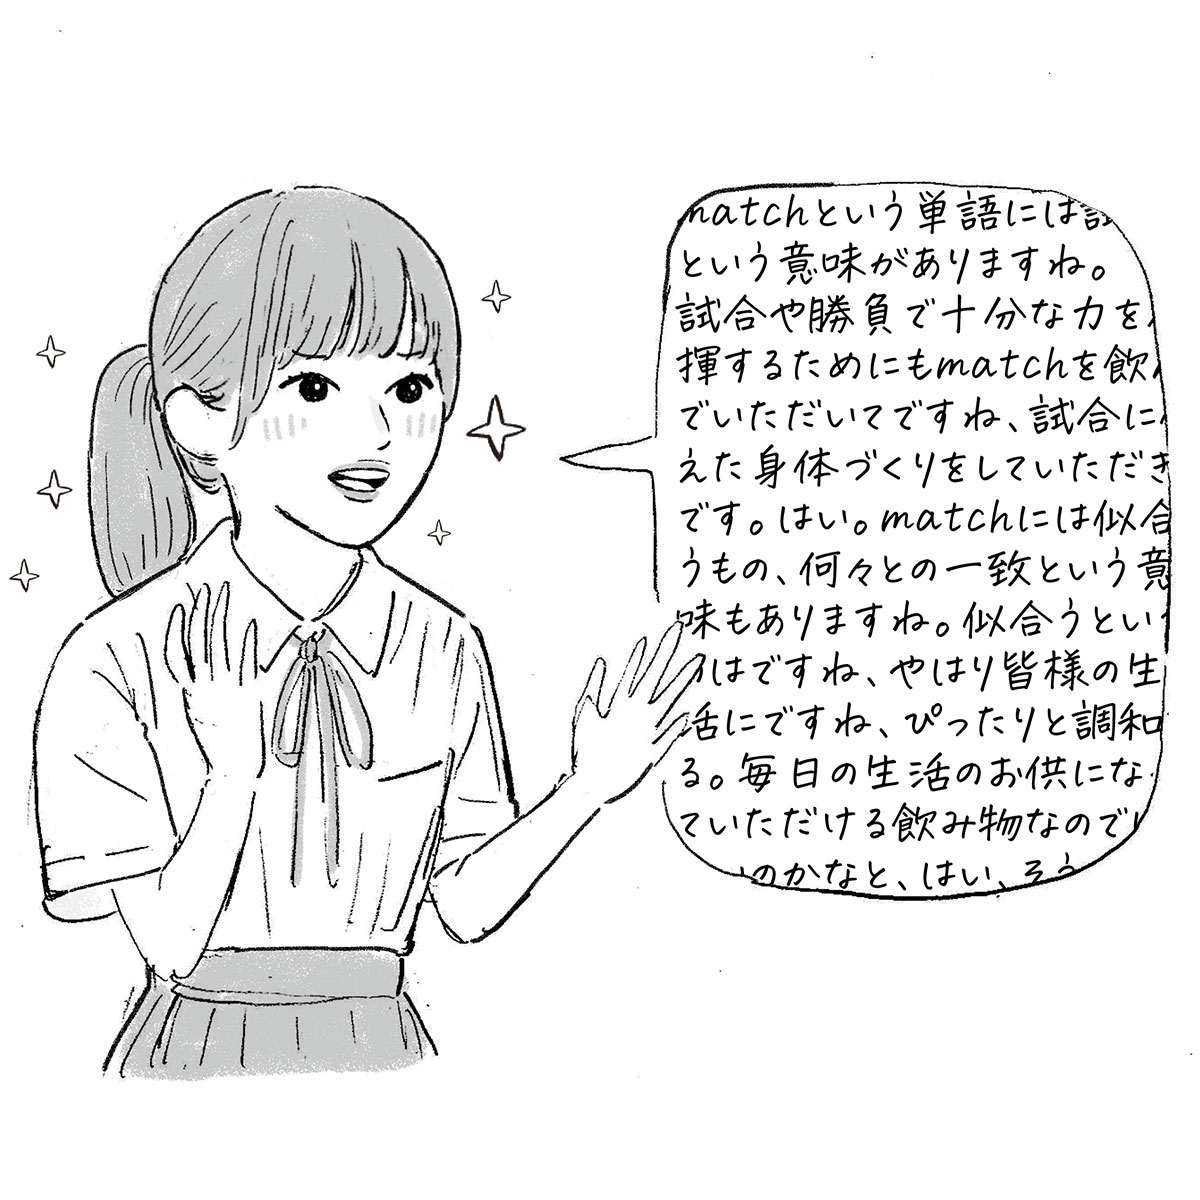 matchという単語には試
という意味がありますね。
試合や勝負で十分な力を
揮するためにもmatchを飲
でいただいてですね、試合に
えた身体づくりをしていただき
です。はい。matchには似合
うもの、何々との一致という意
味もありますね。似合うとい
はですね、やはり皆様の生
活にですね、ぴったりと調和
る。毎日の生活のお供にな
ていただける飲み物なので
のかなと、はい、そう